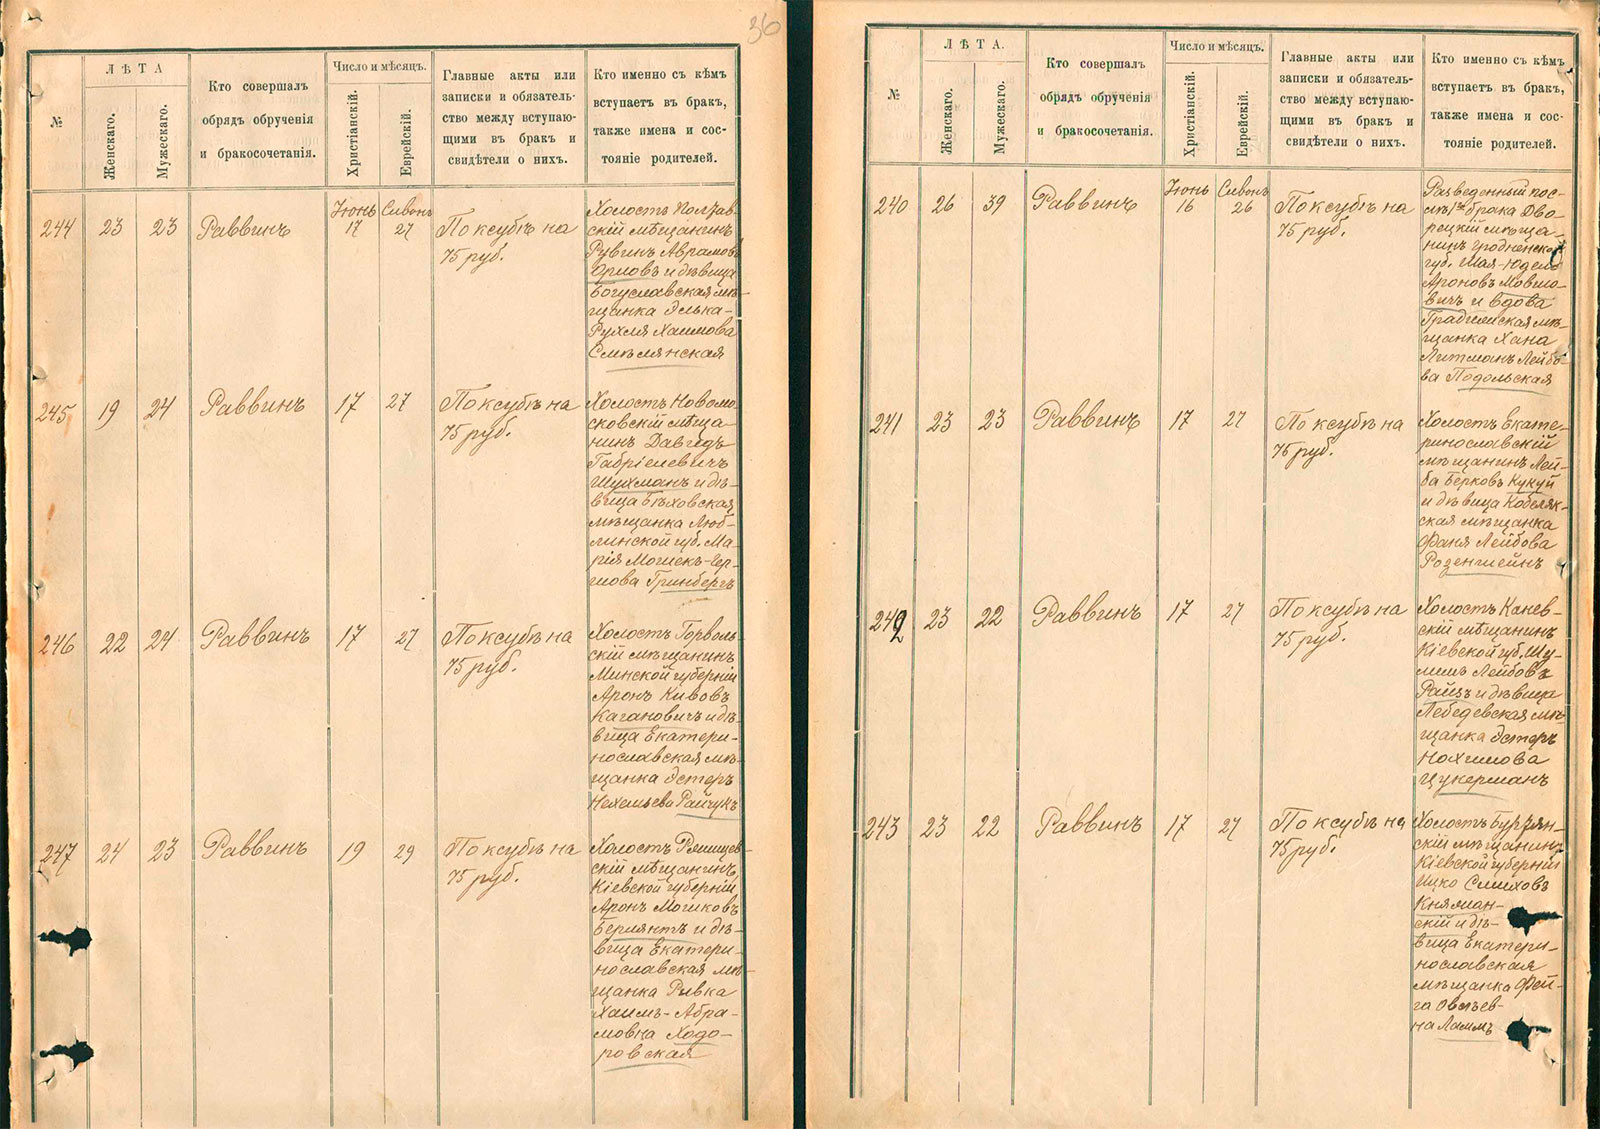 36
№
ЛѢТА
Женскаго.
Мужескаго.
Кто совершалъ
обрядъ обрученія
и бракосочетанія.
Число и мѣсяцъ.
Христіанскій.
Еврейскій.
Главные акты или
записки и обязатель-
ство между вступаю-
щими въ бракъ и
свидѣтели о нихъ.
Кто именно съ кѣмъ
вступаетъ въ бракъ,
также имена и сос-
тояніе родителей.
244
23
23
Раввинъ
Іюнь
17
Сивонъ
27
По ксубѣ на
75 руб.
Холостъ Полтав-
скій мѣщанинъ
Рувинъ Аврамовъ
Орловъ и дѣвица
Богуславская мѣ-
щанка Элька-
Рухля Хаимова
Смѣлянская
245
19
24
Раввинъ
17
27
По ксубѣ на
75 руб.
Холостъ Новомо-
сковскій мѣща-
нинъ Давидъ
Габріелевичъ
Шухманъ и дѣ-
вица Бѣховская
мѣщанка Люб-
линской губ. Ма-
рія Мошек-Гер-
шова Гринбергъ
246
22
24
Раввинъ
17
27
По ксубѣ на
75 руб.
Холостъ Горволь-
скій мѣщанинъ
Минской губерніи
Аронъ Кивовъ
Кагановичъ и дѣ-
вица Екатери-
нославская мѣ-
щанка Эстеръ
Нехемьева Райчукъ
247
24
23
Раввинъ
19
29
По ксубѣ на
75 руб.
Холостъ Ржищев-
скій мѣщанинъ
Кіевской губерніи
Аронъ Мошковъ
Берлянтъ и дѣ-
вица Екатери-
нославская мѣ-
щанка Ривка
Хаимъ-Абра-
мовна Ходо-
ровская
№
ЛѢТА.
Женскаго.
Мужескаго.
Кто совершалъ
обрядъ обрученія
и бракосочетанія.
Число и мѣсяцъ.
Христіанскій.
Еврейскій.
Главные акты или
записки и обязатель-
ство между вступаю-
щими въ бракъ и
свидѣтели о нихъ.
Кто именно съ кѣмъ
вступаетъ въ бракъ,
также имена и сос-
тояніе родителей.
240
26
39
Раввинъ
Іюнь
16
Сивонъ
26
По ксубѣ на
75 руб.
Разведенный пос-
лѣ 1го брака Дво-
рецкій мѣща-
нинъ Гродненской
губ. Шая-Юдель
Ароновъ Мовшо-
вичъ и вдова
Градижская мѣ-
щанка Хана
Литманъ Лейбо-
ва Подольская
241
23
23
Раввинъ
17
27
По ксубѣ на
75 руб.
Холостъ Екате-
ринославскій
мѣщанинъ Лей-
ба Берковъ Кукуй
и дѣвица Кобеляк-
ская мѣщанка
Фаня Лейбова
Розенштейнъ
242
23
22
Раввинъ
17
27
По ксубѣ на
75 руб.
Холостъ Канев-
скій мѣщанинъ
Кіевской губ. Шу-
лимъ Лейбовъ
Райзъ и дѣвица
Лебедевская мѣ-
щанка Эстеръ
Нохимова
Цукерманъ
243
23
22
Раввинъ
17
27
По ксубѣ на
75 руб.
Холостъ
скій мѣщанинъ
Кіевской губерніи
Ицко
Княжан-
скій и дѣ-
вица Екатери-
нославская
мѣщанка Фей-
га Овсѣев-
на Ламмъ